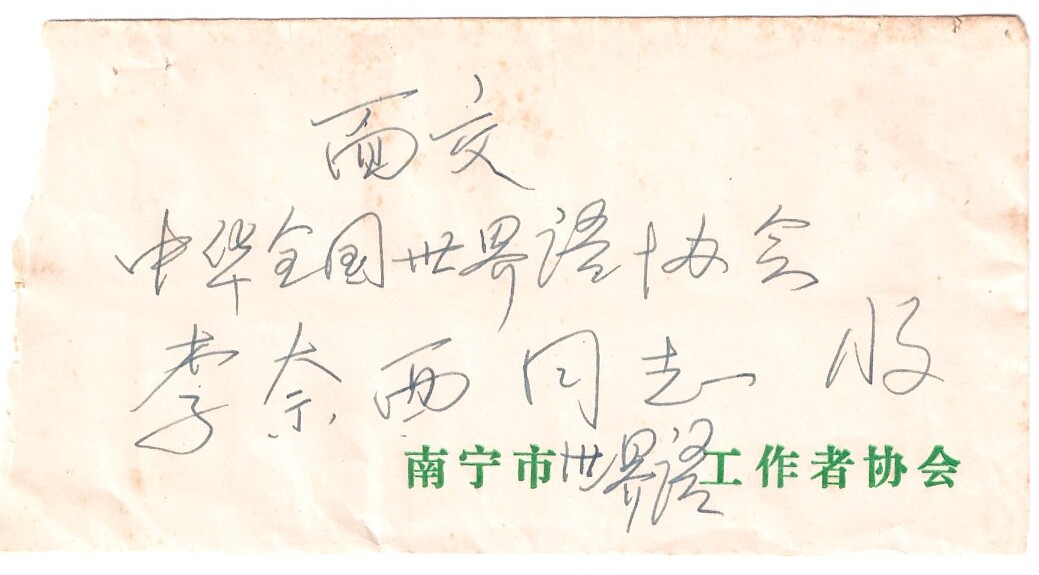 面交
中华全国世界语协会
李奈西同志 收
南宁市世界语工作者协会